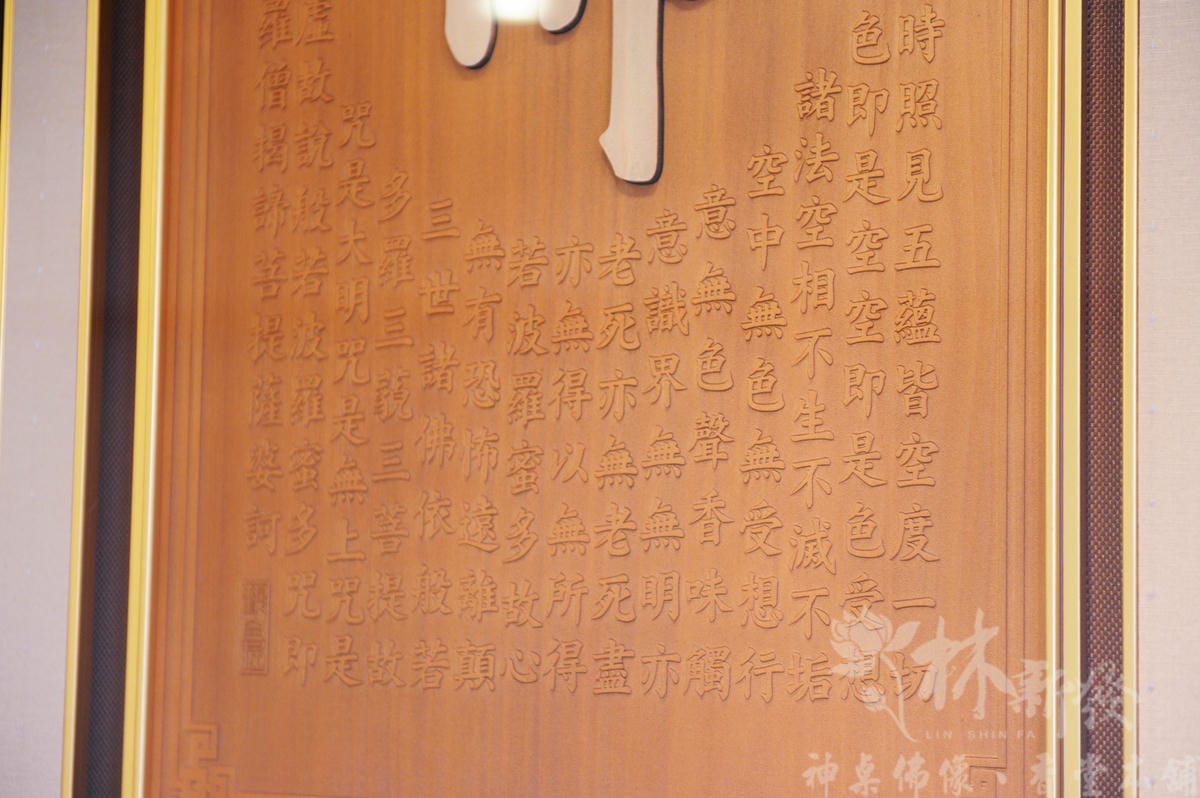 時照見五蘊皆空度一切
色即是空空即是色受想
諸法空相不生不滅不垢
空中無色無受想行
意無色聲香味觸
意識界無無明亦
老死亦無老死盡
亦無得以無所得
若波羅蜜多故心
無有恐怖遠離顛
三世諸佛依般若
多羅三藐三菩提故
咒是大明咒是無上咒是
虛故說般若波羅蜜多咒即
羅僧揭諦菩提薩婆訶
林新發
LIN SHIN FA
神桌佛像、香堂本舖